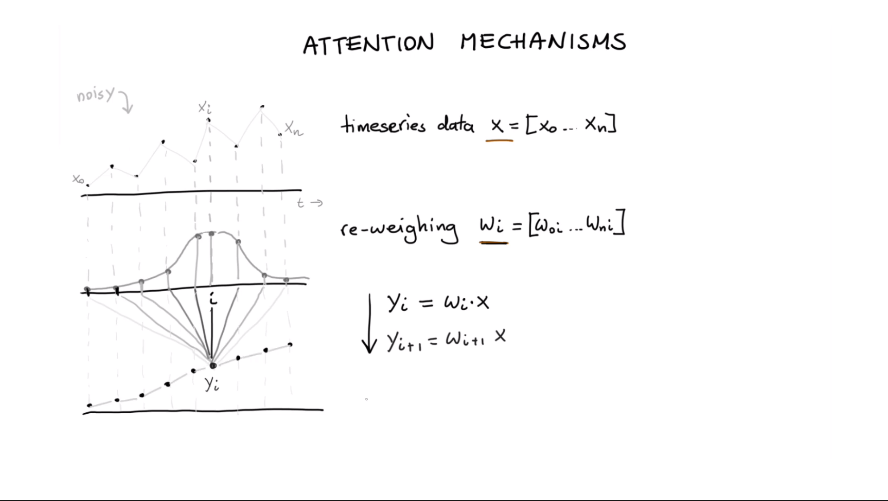 ATTENTION MECHANISMS
noisy
xi
xn
x0
t →
timeseries data x = [x0 ... xn]
re-weighing Wi = [ω0i ... Wni]
i
yi
yi = ωi · x
yi+1 = ωi+1 x